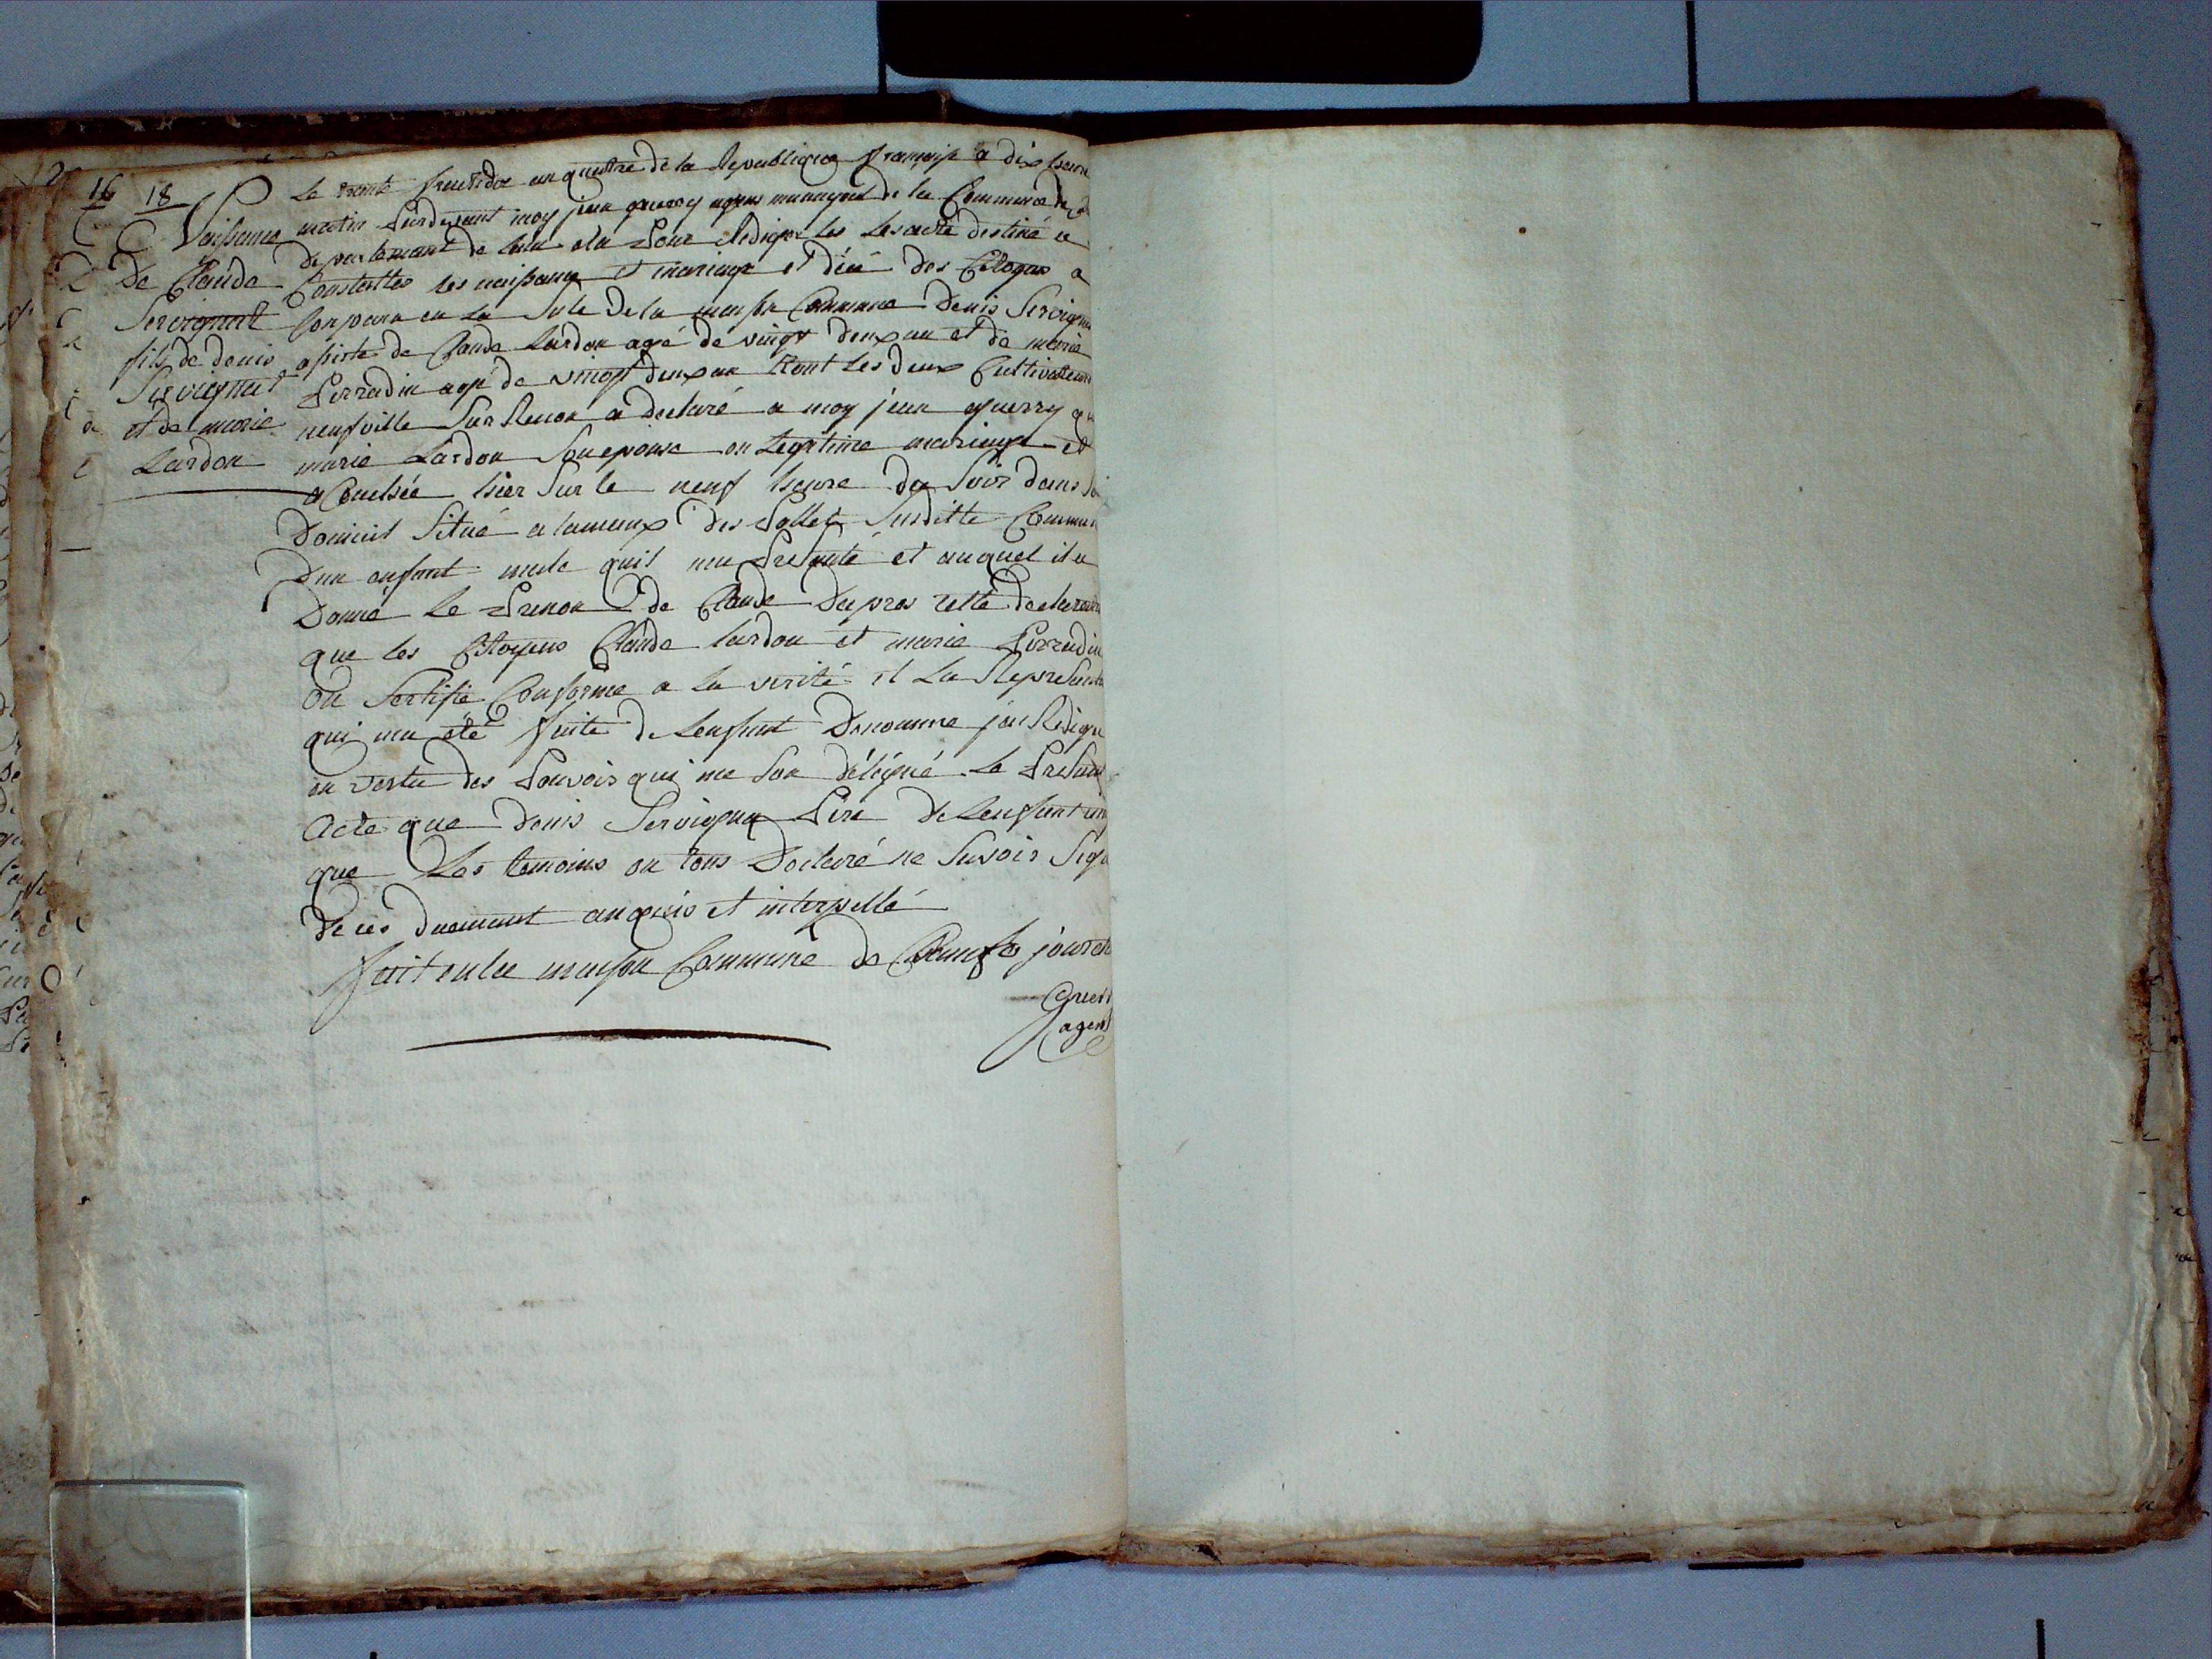 16 18
Naissance
De Claude
Servignat
fils de denis
Servignat
et de marie
Lardon
Le trente fructidor an quatre de la Republique françaisse a dix heure
matin Pardevant moy jean guerry agens municipal de la Commune de
departemant de lain elu Pour Rediger les Les acte destiné a
Constattes les naissance et mariage et décé des Citoyens a
Conparu en La Sale de la maison Commune Denis Servigna
assiste de Claude Lardon agé de vingt deux an et de marie
Perradin agé de vingt deux an tout Les deux Cultivateurs
neufville Sur Renon a declaré a moy jean guerry qu
marie Lardon Son eponse en Legitime mariage et
a Couchée hier Sur le neuf heure du Soir dans So
Domicil Situé a lameaux des Sallet Susditte Commun
Dun anfant male quil ma Presanté et auquel il a
Donné Le Prenon de Claude Dapres cette declaration
que les Citoyens Claude lardon et marie Perradin
on Sertifié Conforme a la verité et La Representa
qui ma été faite de Lenfant Denommé jai Redigé
en vertu des Pouvois qui me son délégué Le Presant
Acte que Denis Servignat Pere de Lenfant
que Les temoins on tous Declaré ne Savoir Sign
De ces duement anquis et interpellé
fait en la maison Commune de jour et
Guerr
agent